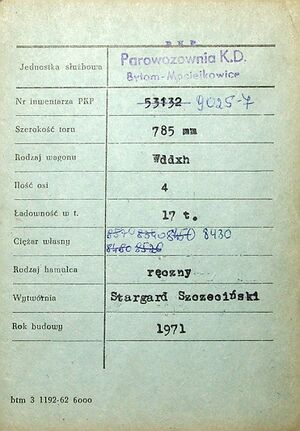 PKP
Jednostka służbowa Parowozownia K.D.
Bytom-Maciejkowice
Nr inwentarza PKP 53132 9025-7
Szerokość toru 785 mm
Rodzaj wagonu Wddxh
Ilość osi 4
Ładowność w t. 17 t.
Ciężar własny 8540 8340 8450 8430
8460 8520
Rodzaj hamulca ręczny
Wytwórnia Stargard Szczeciński
Rok budowy 1971
btm 3 1192-62 6000